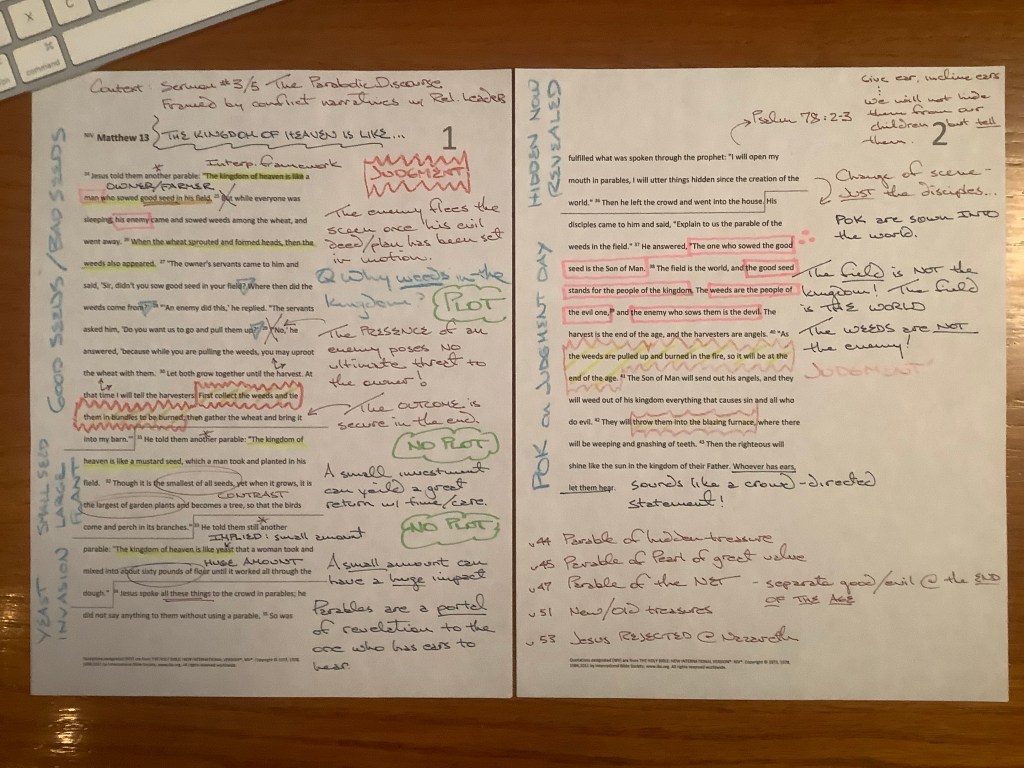 X
C
⌘
command
Context: Sermon #3/5 - The Parabolic Discourse
Framed by conflict narratives w/ Rel. Leaders
Matthew 13
THE KINGDOM OF HEAVEN IS LIKE...
1
Interp. framework
JUDGMENT
24 Jesus told them another parable: "The kingdom of heaven is like a
OWNER/FARMER
man who sowed good seed in his field. 25 But while everyone was
sleeping, his enemy came and sowed weeds among the wheat, and
went away. 26 When the wheat sprouted and formed heads, then the
weeds also appeared. 27 "The owner's servants came to him and
said, 'Sir, didn't you sow good seed in your field? Where then did the
weeds come from?' 28 "'An enemy did this,' he replied. "The servants
asked him, 'Do you want us to go and pull them up?' 29 "'No,' he
answered, 'because while you are pulling the weeds, you may uproot
the wheat with them. 30 Let both grow together until the harvest. At
that time I will tell the harvesters: First collect the weeds and tie
them in bundles to be burned; then gather the wheat and bring it
into my barn.'" 31 He told them another parable: "The kingdom of
heaven is like a mustard seed, which a man took and planted in his
field. 32 Though it is the smallest of all seeds, yet when it grows, it is
CONTRAST
the largest of garden plants and becomes a tree, so that the birds
come and perch in its branches." 33 He told them still another
IMPLIED: small amount
parable: "The kingdom of heaven is like yeast that a woman took and
HUGE AMOUNT
mixed into about sixty pounds of flour until it worked all through the
dough." 34 Jesus spoke all these things to the crowd in parables; he
did not say anything to them without using a parable. 35 So was
GOOD SEEDS/BAD SEEDS
SMALL SEED
LARGE
PLANT
YEAST
INVASION
The enemy flees the
scene once his evil
deed/plan has been set
in motion.
Q Why weeds in the
kingdom?
PLOT
The PRESENCE of an
enemy poses NO
ultimate threat to
the owner!
The OUTCOME is
secure in the end.
NO PLOT
A small investment
can yeild a great
return w/ time/care.
NO PLOT
A small amount can
have a huge impact
Parables are a portal
of revelation to the
one who has ears to
hear
Quotations designated (NIV) are from THE HOLY BIBLE: NEW INTERNATIONAL VERSION®. NIV®. Copyright © 1973, 1978,
1984, 2011 by International Bible Society, www.ibs.org. All rights reserved worldwide.
HIDDEN NOW
REVEALED
POK on JUDGMENT DAY
Psalm 78:2-3
Give ear, incline ears
we will not hide
them from our
children but tell
them.
2
fulfilled what was spoken through the prophet: "I will open my
mouth in parables, I will utter things hidden since the creation of the
world." 36 Then he left the crowd and went into the house. His
disciples came to him and said, "Explain to us the parable of the
weeds in the field." 37 He answered, "The one who sowed the good
seed is the Son of Man. 38 The field is the world, and the good seed
stands for the people of the kingdom. The weeds are the people of
the evil one, 39 and the enemy who sows them is the devil. The
harvest is the end of the age, and the harvesters are angels. 40 "As
the weeds are pulled up and burned in the fire, so it will be at the
end of the age. 41 The Son of Man will send out his angels, and they
will weed out of his kingdom everything that causes sin and all who
do evil. 42 They will throw them into the blazing furnace, where there
will be weeping and gnashing of teeth. 43 Then the righteous will
shine like the sun in the kingdom of their Father. Whoever has ears,
let them hear.
sounds like a crowd-directed
statement!
Change of scene-
JUST the disciples...
POK are sown INTO
the world.
The field is NOT the
kingdom! The field
is THE WORLD
The WEEDS are NOT
the enemy!
JUDGMENT
v44 Parable of hidden treasure
v45 Parable of Pearl of great value
v47 Parable of the NET - separate good/evil @ the END
OF THE AGE
v51 New/Old treasures
v53 Jesus REJECTED @ Nazareth
Quotations designated (NIV) are from THE HOLY BIBLE: NEW INTERNATIONAL VERSION®. NIV®. Copyright © 1973, 1978,
1984, 2011 by International Bible Society, www.ibs.org. All rights reserved worldwide.